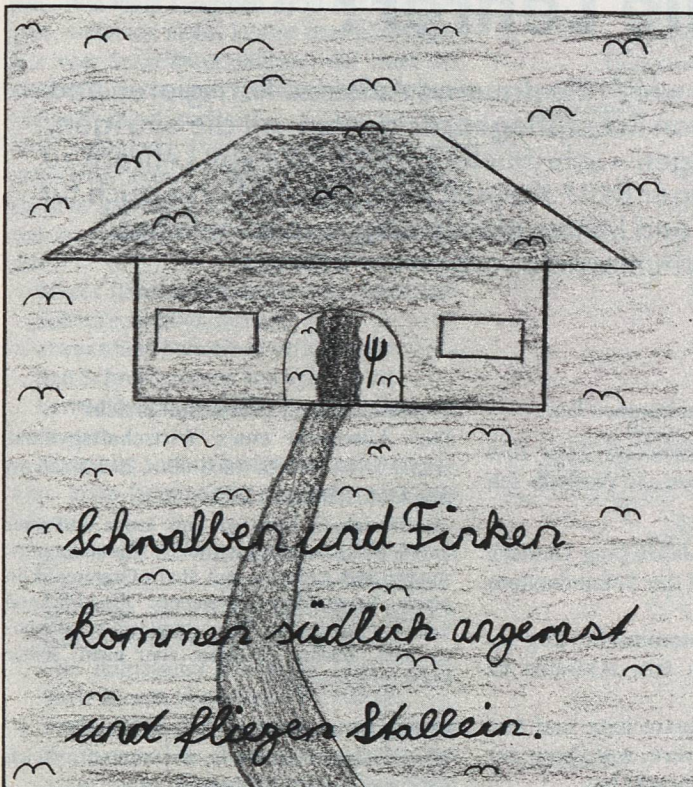 Schwalben und Finken
kommen südlich angerast
und fliegen Stallein.